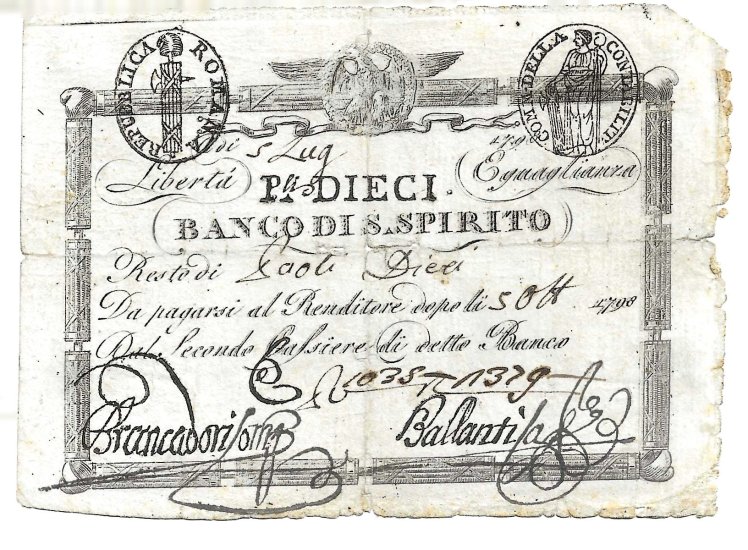 REPUBBLICA ROMANA
COM. DELLA CONTABILIT.
di 5 Lug 1798
Libertá
Eguaglianza
Pi. DIECI.
BANCO DI S. SPIRITO
Resto di Paoli Dieci
Da pagarsi al Renditore dopo li 5 Ott 1798
Dal Secondo Cassiere di detto Banco
1035 1379
Brancadori
Ballanti